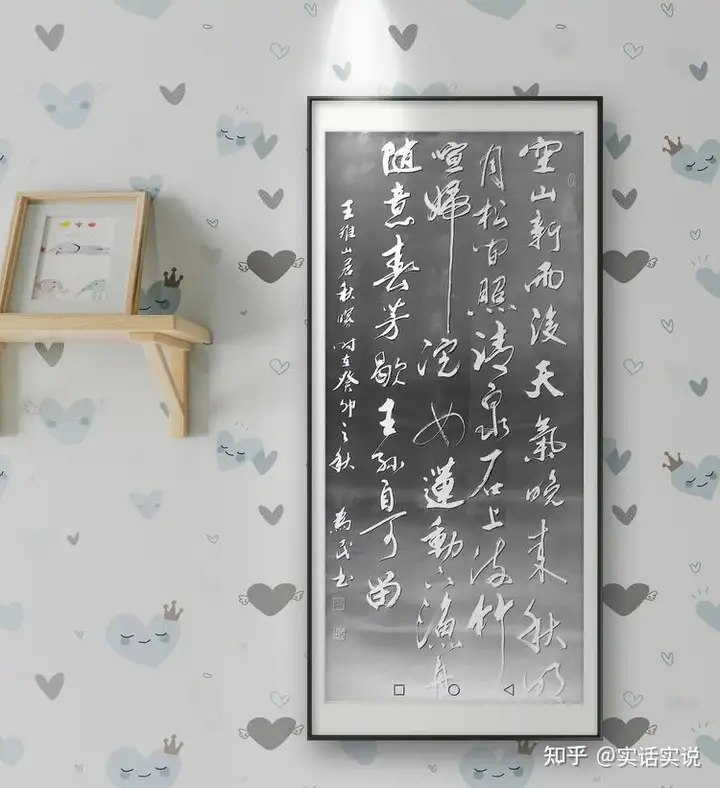 空山新雨後天氣晚来秋明
月松间照清泉石上流竹
喧歸浣女蓮動下漁舟
随意春芳歇王孫自可留
王維山居秋暝时在癸卯之秋
為民书
知乎 @实话实说